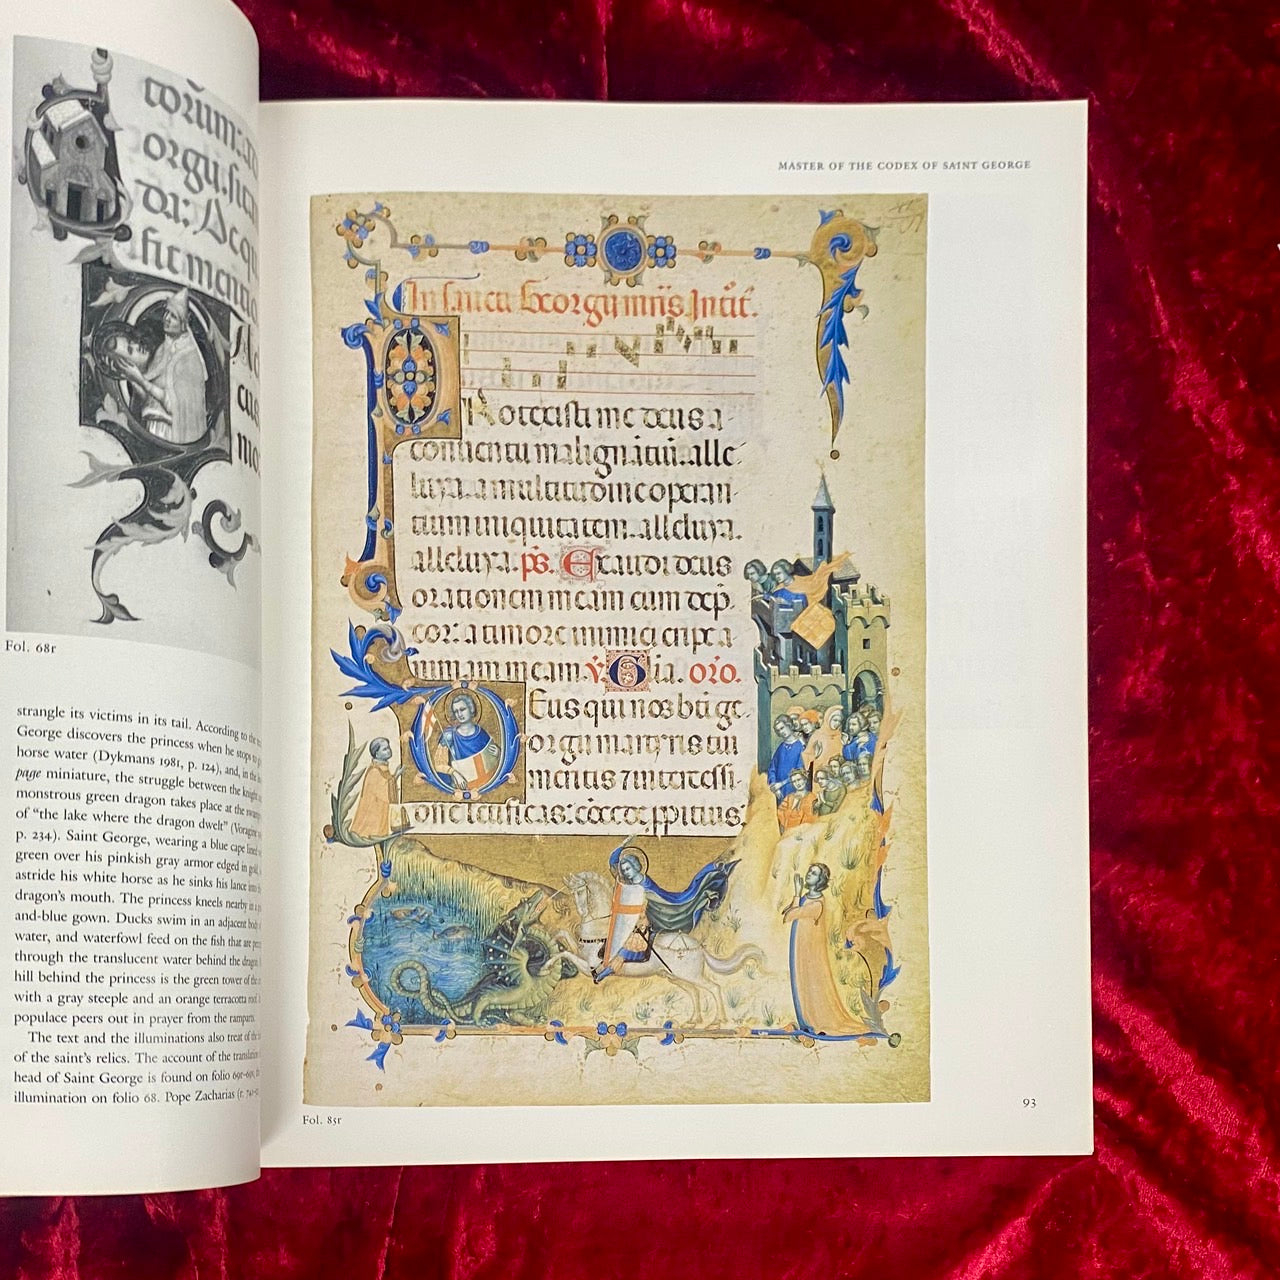 orgii.
Fol. 68r
strangle its victims in its tail. According to the
George discovers the princess when he stops to
horse water (Dykmans 1981, p. 124), and, in the
page miniature, the struggle between the knight
monstrous green dragon takes place at the
of “the lake where the dragon dwelt” (Voragine
p. 234). Saint George, wearing a blue cape lined
green over his pinkish gray armor edged in gold,
astride his white horse as he sinks his lance into
dragon's mouth. The princess kneels nearby in a
and-blue gown. Ducks swim in an adjacent body
water, and waterfowl feed on the fish that are
through the translucent water behind the dragon.
hill behind the princess is the green tower of the
with a gray steeple and an orange terracotta roof.
populace peers out in prayer from the ramparts.
The text and the illuminations also treat of the
of the saint's relics. The account of the translation
head of Saint George is found on folio 69r–69v,
illumination on folio 68. Pope Zacharias (r. 741–52
MASTER OF THE CODEX OF SAINT GEORGE
In sancti Georgii mris Introit.
Protexisti me deus a
conuentu malignātiū. alle
luya. a multitudine operan
tium iniquitatem. alleluya.
alleluya. ps. Exaudi deus
orationem meam cum dep
cor: a timore inimici eripe a
nimam meam. v. Gla. oro.
Deus qui nos bti ge
orgii martyris tui
meritis 7 intercessi
one letificas: cōcede ppitius;
Fol. 85r
93